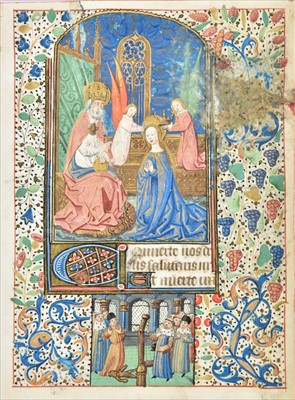 Conuerte nos d
eus salutaris n
Et auerte ira